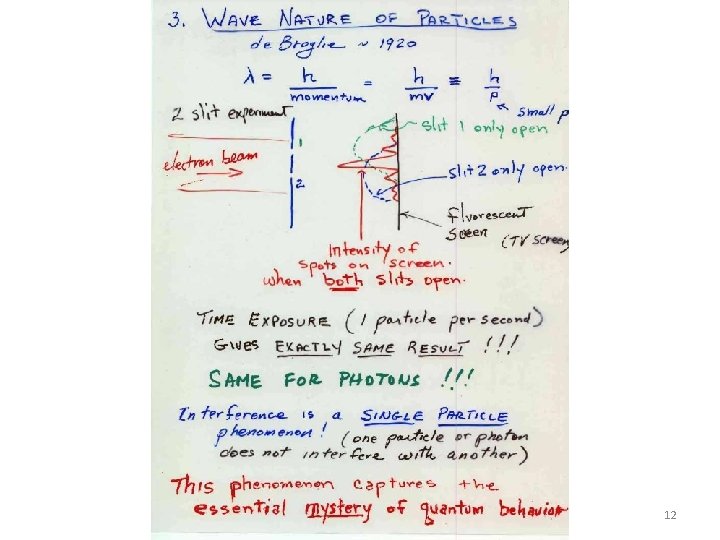 3. WAVE NATURE OF PARTICLES
de Broglie ~ 1920
λ = h / momentum = h / mv ≡ h / p
small p
2 slit experiment
slit 1 only open
1
electron beam
2
slit 2 only open.
fluorescent
screen (TV screen
Intensity of
spots on screen.
when both slits open.
TIME EXPOSURE (1 particle per second)
GIVES EXACTLY SAME RESULT !!!
SAME FOR PHOTONS !!!
Interference is a SINGLE PARTICLE
phenomenon! (one particle or photon
does not interfere with another)
This phenomenon captures the
essential mystery of quantum behavior
12